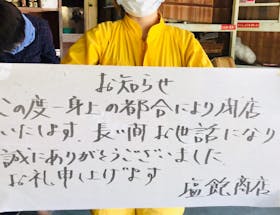 お知らせ
この度一身上の都合により閉店
いたします。長い間お世話になり
誠にありがとうございました
お礼申し上げます
塩飽商店